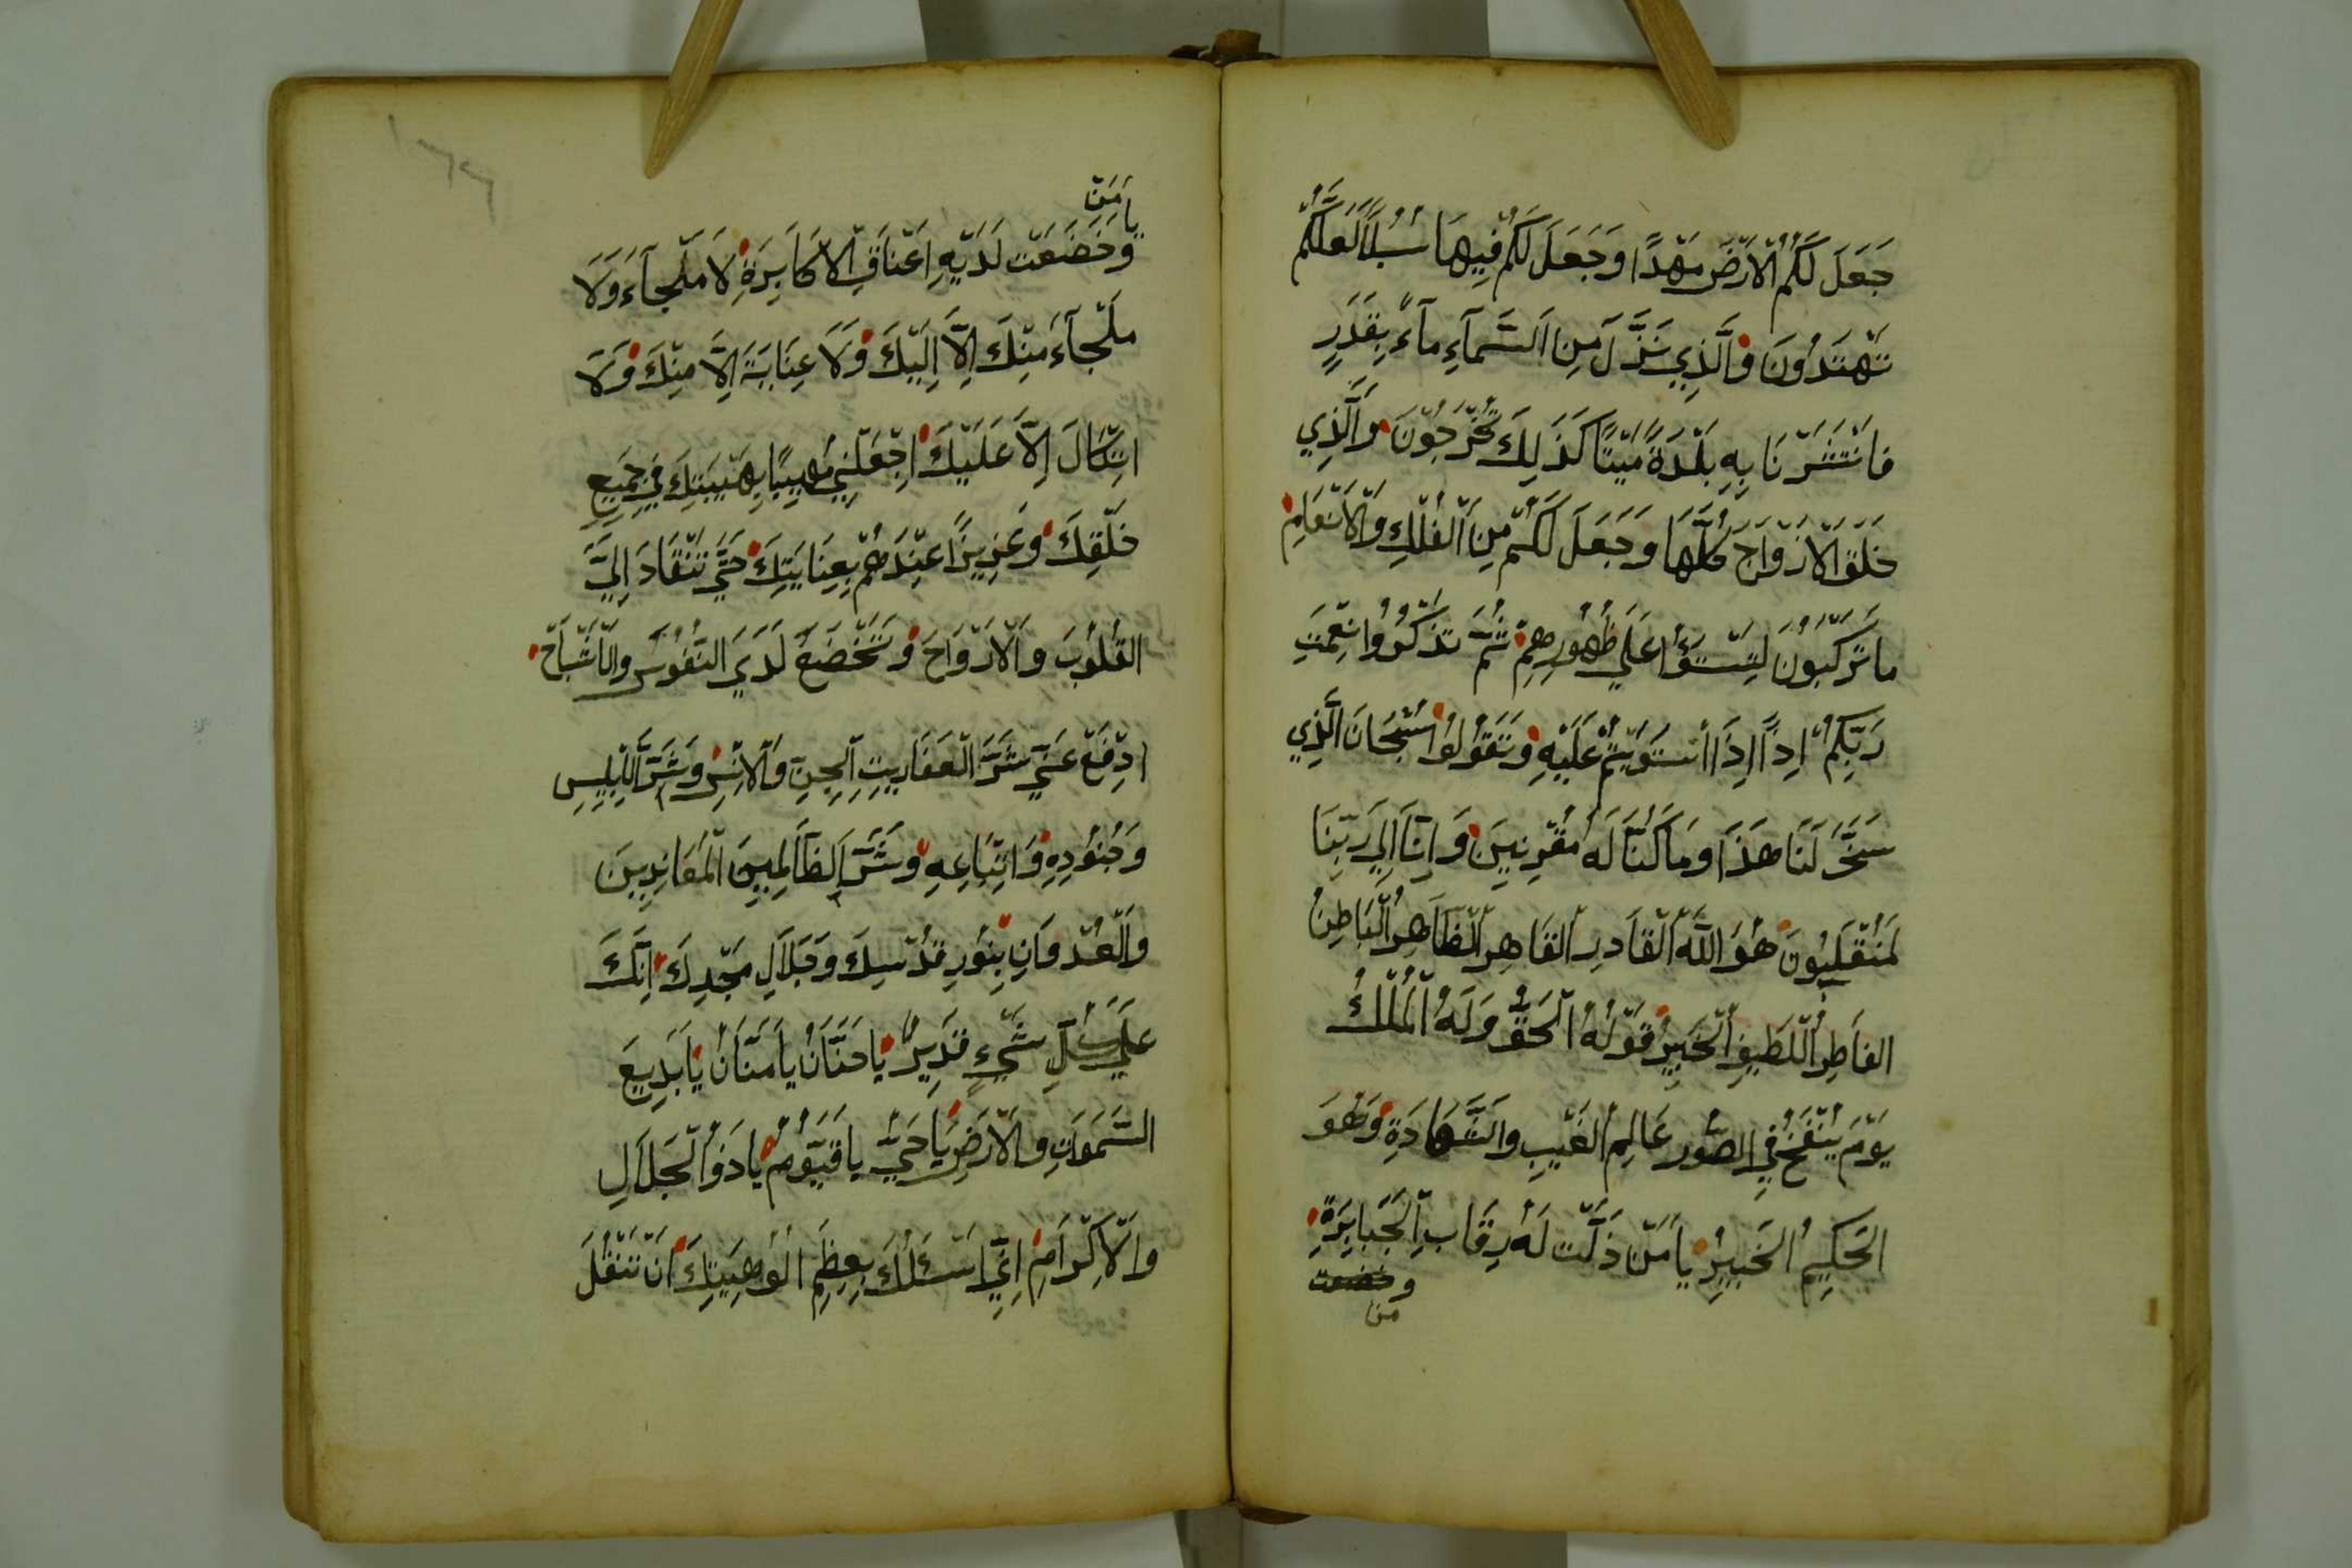 جَعَلَ لَكُمُ الْاَرْضَ مَهْدًا وَجَعَلَ لَكُمْ فِيهَا سُبُلًا لَعَلَّكُمْ
تَهْتَدُونَ وَالَّذِي نَزَّلَ مِنَ السَّمَآءِ مآءً بِقَدَرٍ
فَانْتَشَرْنَا بِهِ بَلْدَةً مَيْتًا كَذَلِكَ تُخْرَجُونَ وَالَّذِي
خَلَقَ الْاَزْوَاجَ كُلَّهَا وَجَعَلَ لَكُمْ مِنَ الْفُلْكِ وَالْاَنْعَامِ
مَا تَرْكَبُونَ لِتَسْتَوُٗا عَلَي ظُهُورِهِمْ ثُمَّ تَذْكُرُوا نِعْمَتَ
رَبِّكُمْ اِذًا اِذَا اسْتَوَيْتُمْ عَلَيْهِ وَتَقُولُوا سُبْحَانَ الَّذِي
سَخَّرَ لَنَا هَذَا وَمَا كُنَّا لَهُ مُقْرِنِينَ وَاِنَّا اِلَي رَبِّنَا
لَمُنْقَلِبُونَ هُوَ اللَّهُ الْقَادِرُ الْقَاهِرُ الْظَاهِرُ الْبَاطِنُ
الفَاطِرُ اللَّطِيفُ الْخَبِيرُ قَوْلُهُ الْحَقُّ وَلَهُ الْمُلْكُ
يَوْمَ يُنْفَخُ فِي الصُّورِ عَالِمُ الغَيْبِ وَالشَّهَادَةِ وَهُوَ
الحَكِيمُ الخَبِيرُ يَا مَنْ ذَلَّتْ لَهُ رِقَابُ الْجَبَابِرَةِ
وخضعت
من
يا مَنْ
وَخَضَعَتْ لَدَيْهِ اَعْنَاقُ الْاَكَابِرَةِ لَا مَلْجآءَ وَلَا
مَلْجآءَ مِنْكَ اِلَّا اِلَيْكَ وَلَا عِنَايَةَ اِلَّا مِنْكَ وَلَا
اتِّكَالَ اِلَّا عَلَيْكَ اِجْعَلْنِي مُهِيبًا بِهَيْبَتِكَ فِي جَمِيعِ
خَلْقِكَ وَعَزِيزًا عِنْدَهُمْ بِعِنَايَتِكَ حَتَّي تَنْقَادَ اِلَيَّ
القُلُوبَ وَالْاَرْوَاحَ وَتَخْضَعُ لَدَيَ النُفُوسَ وَالْاَشْبَاحَ
ادْفَعْ عَنِّي شَرَّ الْعَفَارِيتِ الْجِنِّ وَالْاِنْسِ وَشَرَّ اِبْلِيسِ
وَجُنُودِهِ وَاتِّبَاعِهِ وَشَرَّ الظَالِمِينَ الْمُعَانِدِينَ
وَالْعُدْوَانِ بِنُورِ قُدْسِكَ وَجَلَالِ مَجْدِكَ اِنَّكَ
عَلَي كُلِّ شَيْءٍ قَدِيرٌ يَا حَنَّانُ يَا مَنَّانُ يَا بَدِيعَ
السَّمَوَاتِ وَالْاَرْضِ يَا حَيُّ يَا قَيُّومُ يَا ذَوُ الْجَلَالِ
وَالْاِكْرَامِ اِنِّي اَسْئَلُكَ بِعِظَمِ اُلُوهِيَتِكَ اَنْ تَنْقُلَ